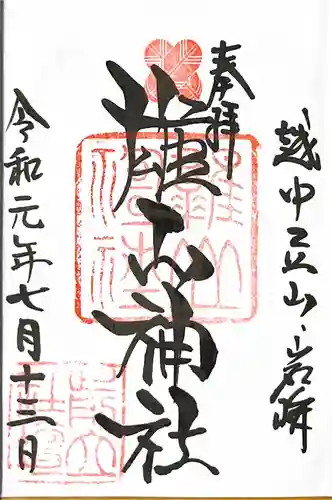 越中立山・山岩峅
奉拝
雄山神社
令和元年七月十三日